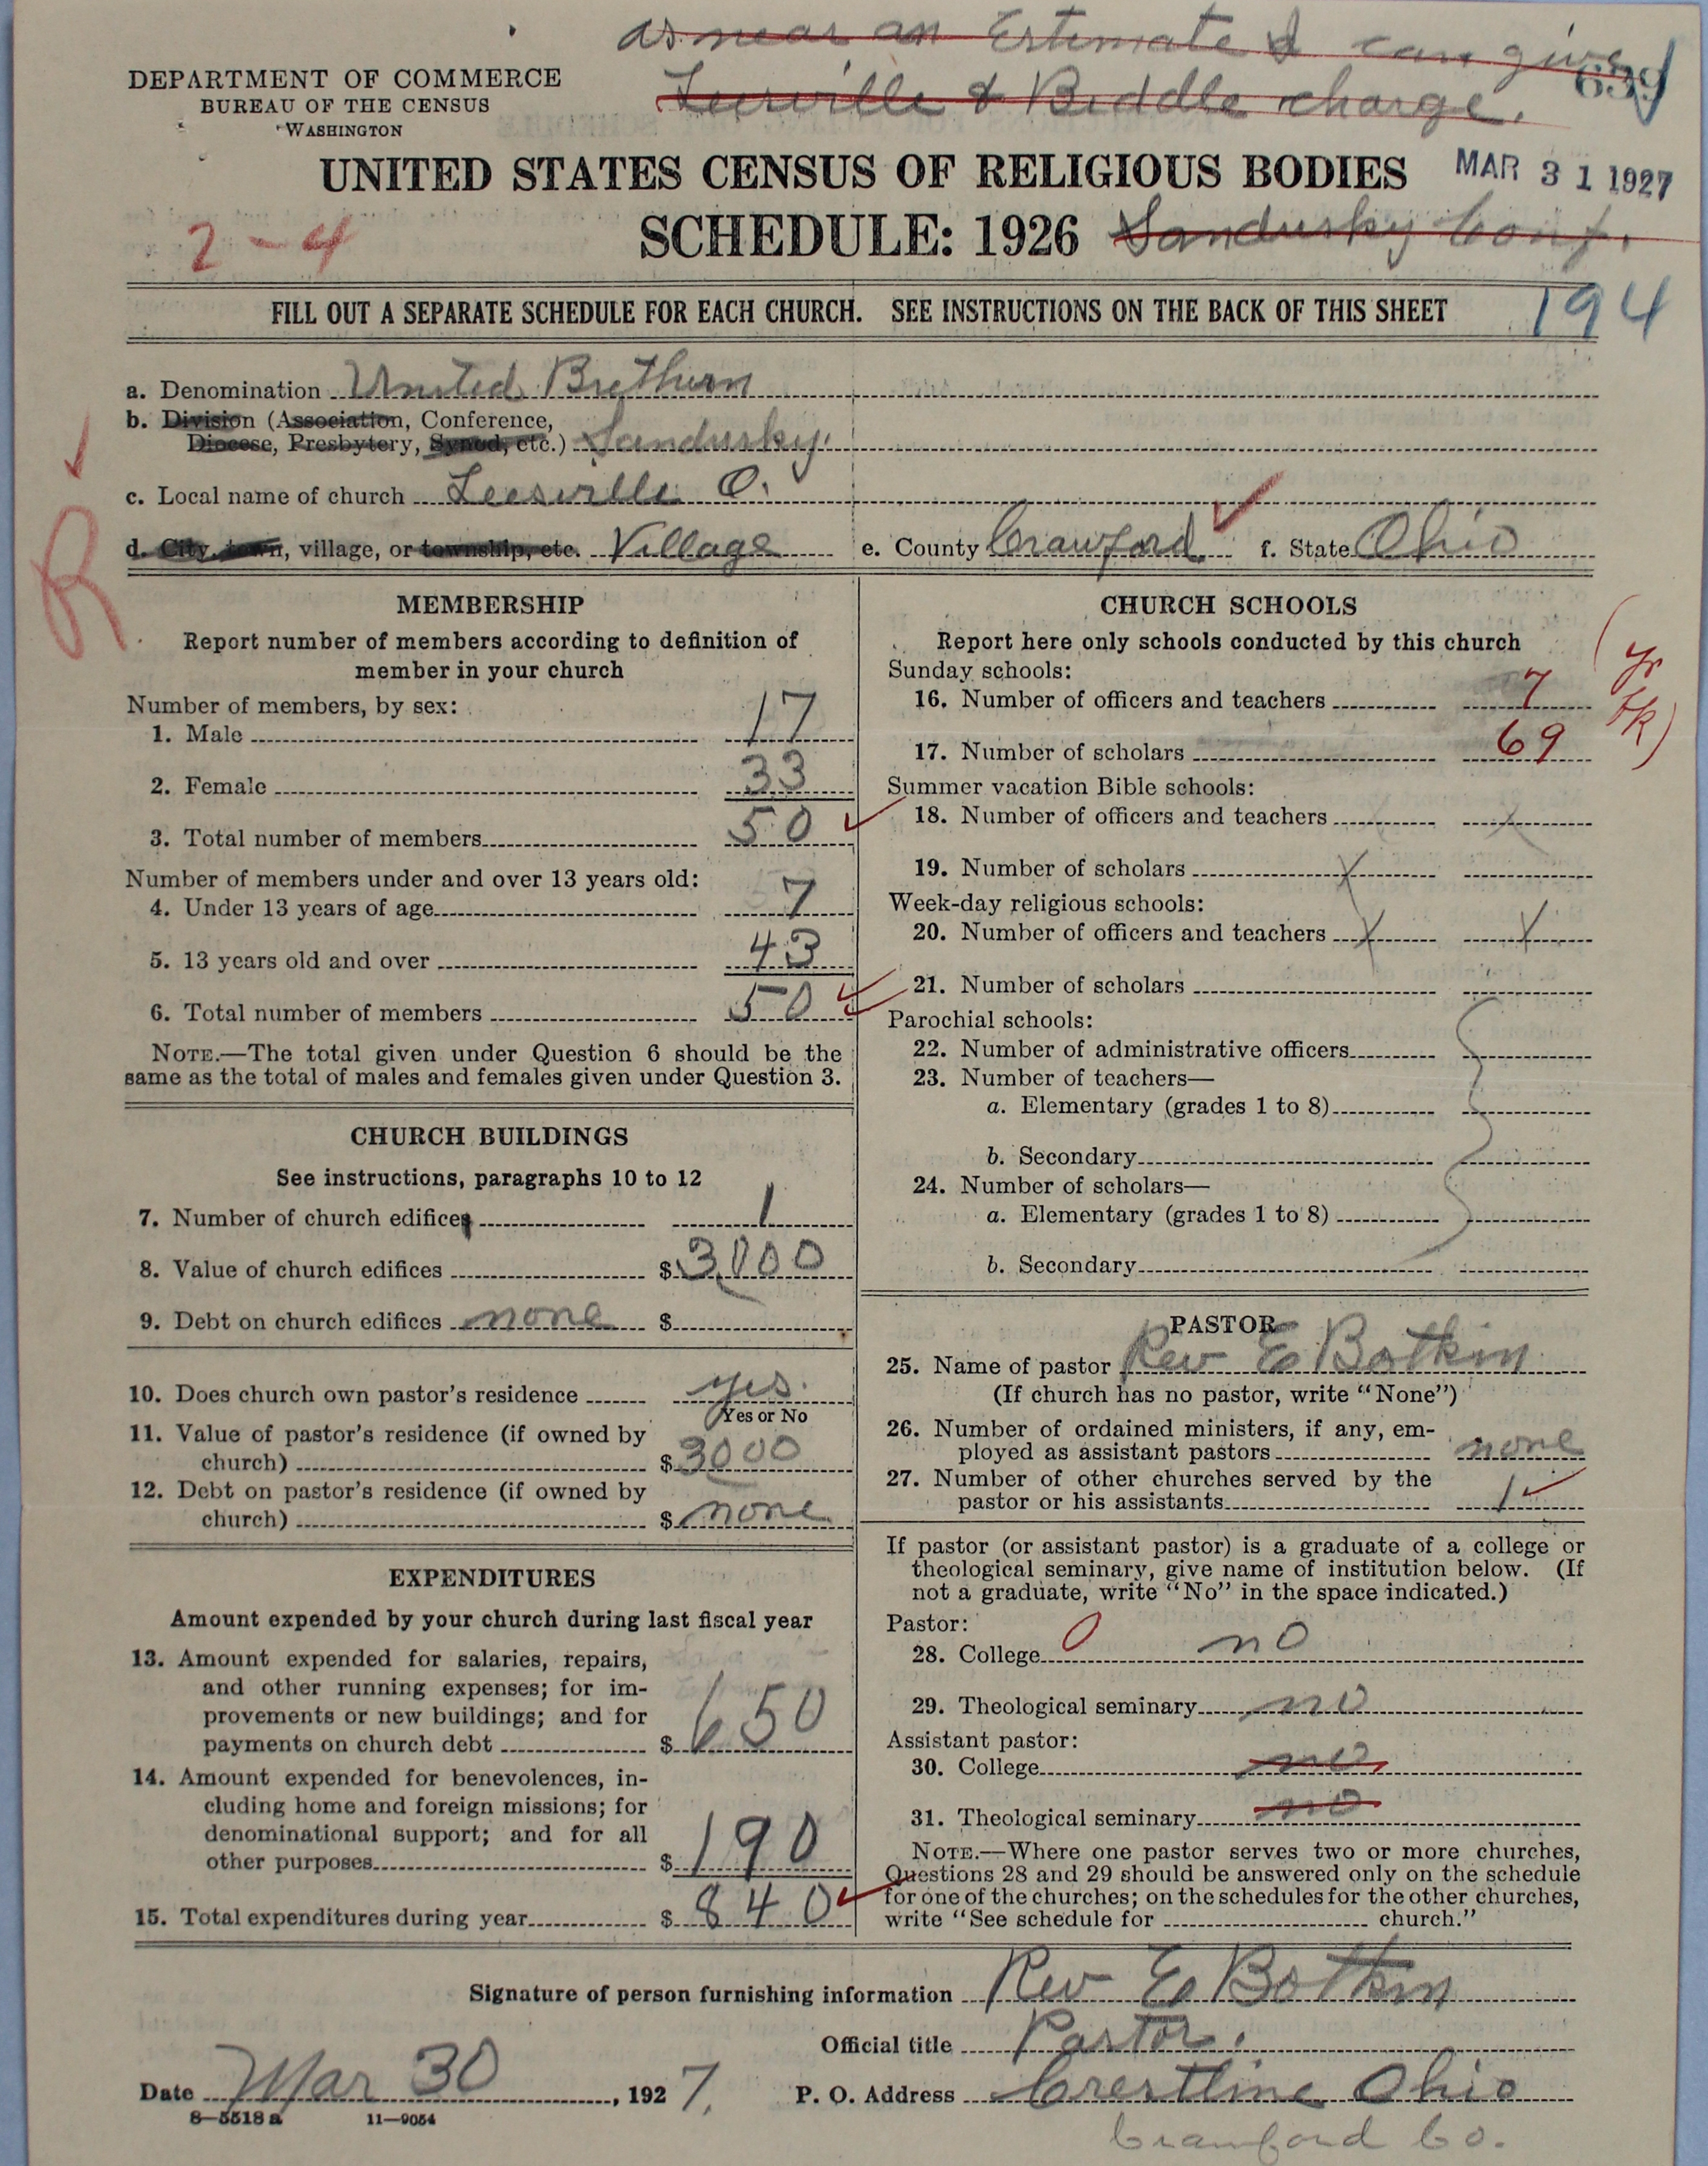 as near an Estimate I can give
Leesville & Biddle charge.
659
DEPARTMENT OF COMMERCE
BUREAU OF THE CENSUS
WASHINGTON
UNITED STATES CENSUS OF RELIGIOUS BODIES
MAR 31 1927
SCHEDULE: 1926 Sandusky Conf.
2-4
FILL OUT A SEPARATE SCHEDULE FOR EACH CHURCH. SEE INSTRUCTIONS ON THE BACK OF THIS SHEET
194
a. Denomination United Brethern
b. Division (Association, Conference,
Diocese, Presbytery, Synod, etc.) Sandusky.
c. Local name of church Leesville O.
d. City, town, village, or township, etc. Village e. County Crawford f. State Ohio
R
MEMBERSHIP
Report number of members according to definition of
member in your church
Number of members, by sex:
1. Male 17
2. Female 33
3. Total number of members 50
Number of members under and over 13 years old:
4. Under 13 years of age 7
5. 13 years old and over 43
6. Total number of members 50
NOTE.—The total given under Question 6 should be the
same as the total of males and females given under Question 3.
CHURCH BUILDINGS
See instructions, paragraphs 10 to 12
7. Number of church edifices 1
8. Value of church edifices $3000
9. Debt on church edifices none $
10. Does church own pastor's residence yes.
Yes or No
11. Value of pastor's residence (if owned by
church) $3000
12. Debt on pastor's residence (if owned by
church) $ none
EXPENDITURES
Amount expended by your church during last fiscal year
13. Amount expended for salaries, repairs,
and other running expenses; for im-
provements or new buildings; and for
payments on church debt $ 650
14. Amount expended for benevolences, in-
cluding home and foreign missions; for
denominational support; and for all
other purposes $ 190
15. Total expenditures during year $ 840
CHURCH SCHOOLS
Report here only schools conducted by this church
Sunday schools:
16. Number of officers and teachers 7
17. Number of scholars 69
(Yr
bk)
Summer vacation Bible schools:
18. Number of officers and teachers x
19. Number of scholars x
Week-day religious schools:
20. Number of officers and teachers x x
21. Number of scholars
Parochial schools:
22. Number of administrative officers
23. Number of teachers—
a. Elementary (grades 1 to 8)
b. Secondary
24. Number of scholars—
a. Elementary (grades 1 to 8)
b. Secondary
PASTOR
25. Name of pastor Rev E Botkin
(If church has no pastor, write "None")
26. Number of ordained ministers, if any, em-
ployed as assistant pastors none
27. Number of other churches served by the
pastor or his assistants 1
If pastor (or assistant pastor) is a graduate of a college or
theological seminary, give name of institution below. (If
not a graduate, write "No" in the space indicated.)
Pastor:
28. College 0 no
29. Theological seminary no
Assistant pastor:
30. College no
31. Theological seminary no
NOTE.—Where one pastor serves two or more churches,
Questions 28 and 29 should be answered only on the schedule
for one of the churches; on the schedules for the other churches,
write "See schedule for church."
Signature of person furnishing information Rev E Botkin
Official title Pastor.
Date Mar 30, 1927. P. O. Address Crestline Ohio
8—5518a 11—9054
Crawford Co.